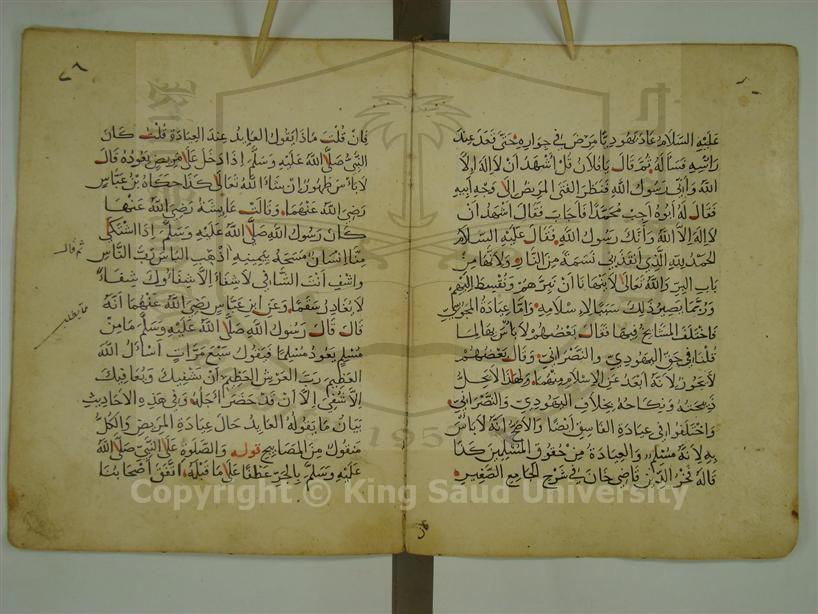 عليه السلام عاد يهوديا مرض في جواره حتى قعد عند
رأسه فسأله ثم قال يا فلان قل أشهد أن لا إله إلا
الله وأني رسول الله فنظر الفتى المريض إلى وجه أبيه
فقال له أبوه أجب محمدا فأجاب فقال أشهد أن
لا إله إلا الله وأنك رسول الله فقال عليه السلام
الحمد لله الذي أنقذ بي نسمة من النار ولأنها من
باب البر والله تعالى لا ينهانا أن نبرهم ونقسط إليهم
وربما يصير ذلك سببا لإسلامه وأما عيادة المجوسي
فاختلف المشايخ فيها فقال بعضهم لا بأس بها لما
قلنا في حق اليهودي والنصراني وقال بعضهم
لا يجوز لأنه أبعد عن الإسلام منهما ولهذا لا يحل
ذبيحته ونكاحه بخلاف اليهودي والنصراني
واختلفوا في عيادة الفاسق أيضا والأصح أنه لا بأس
به لأنه مسلم والعيادة من حقوق المسلمين كذا
قاله فخر الدين قاضي خان في شرح الجامع الصغير
فإن قلت ماذا يقول العايد عند العيادة قلت كان
النبي صلى الله عليه وسلم إذا دخل على مريض يعوده قال
لا بأس طهور إن شاء الله تعالى كذا حكاه بن عباس
رضي الله عنهما وقالت عايشة رضي الله عنها
كان رسول الله صلى الله عليه وسلم إذا اشتكى
منا إنسان مسحه بيمينه أذهب الباس رب الناس
ثم قال
واشف أنت الشافي لا شفاء إلا شفاؤك شفاء
لا يغادر سقما وعن ابن عباس رضي الله عنهما أنه
قال قال رسول الله صلى الله عليه وسلم ما من
مسلم يعود مسلما فيقول سبع مرات أسأل الله
العظيم رب العرش العظيم أن يشفيك ويعافيك
إلا شفي إلا أن قد حضر أجله وفي هذه الأحاديث
بيان ما يقوله العايد حال عيادة المريض والكل
منقول من المصابيح قوله والصلوة على النبي صلى الله
عليه وسلم بالجر عطفا على ما قبله اتفق أصحابنا
Copyright © King Saud University